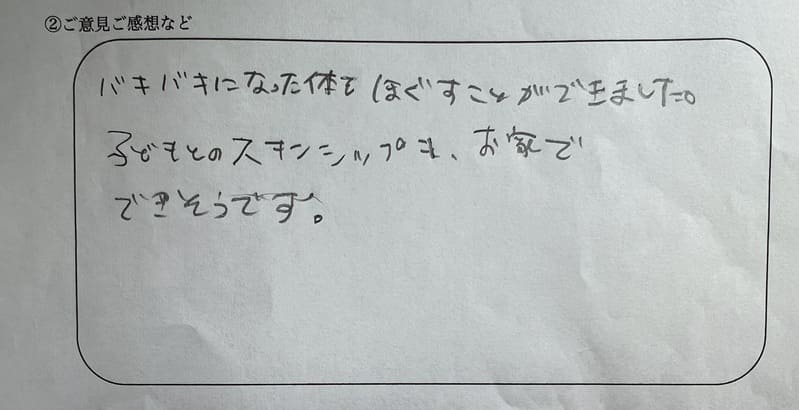 ②ご意見ご感想など
バキバキになった体をほぐすことができました。
子どもとのスキンシップも、お家で
できそうです。